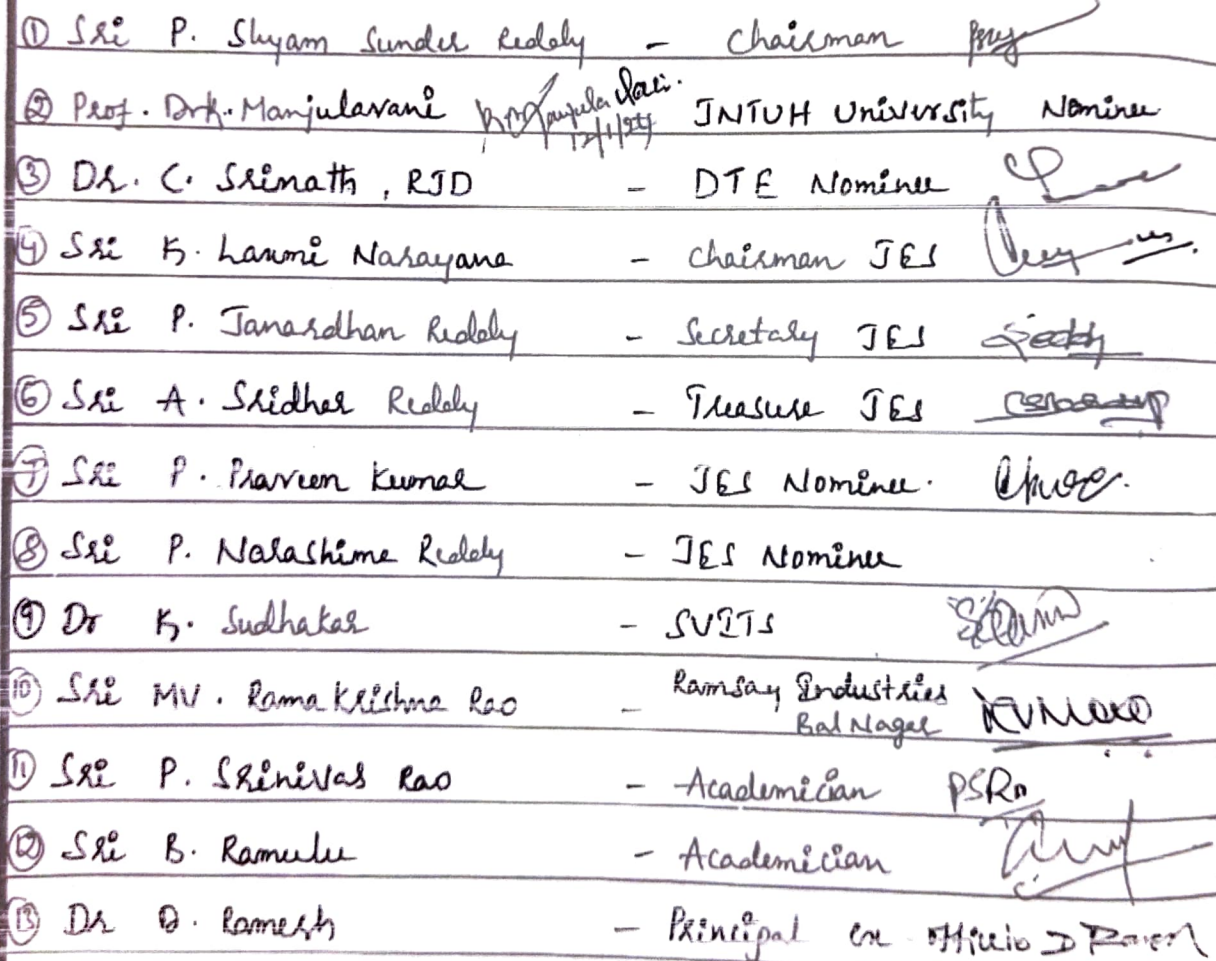 ① Sri P. Shyam Sunder Reddy - Chairman
② Prof. Dr K. Manjulavani 12/1/24 JNTUH University Nominee
③ Dr. C. Srinath, RJD - DTE Nominee
④ Sri K. Laxmi Narayana - Chairman JES
⑤ Sri P. Janardhan Reddy - Secretary JES
⑥ Sri A. Sridher Reddy - Treasure JES
⑦ Sri P. Praveen Kumar - JES Nominee.
⑧ Sri P. Narashima Reddy - JES Nominee
⑨ Dr K. Sudhakar - SVITS
⑩ Sri MV. Rama Krishna Rao - Ramsay Industries
Bal Nagar
⑪ Sri P. Srinivas Rao - Academician PSRn
⑫ Sri B. Ramulu - Academician
⑬ Dr D. Ramesh - Principal ex officio